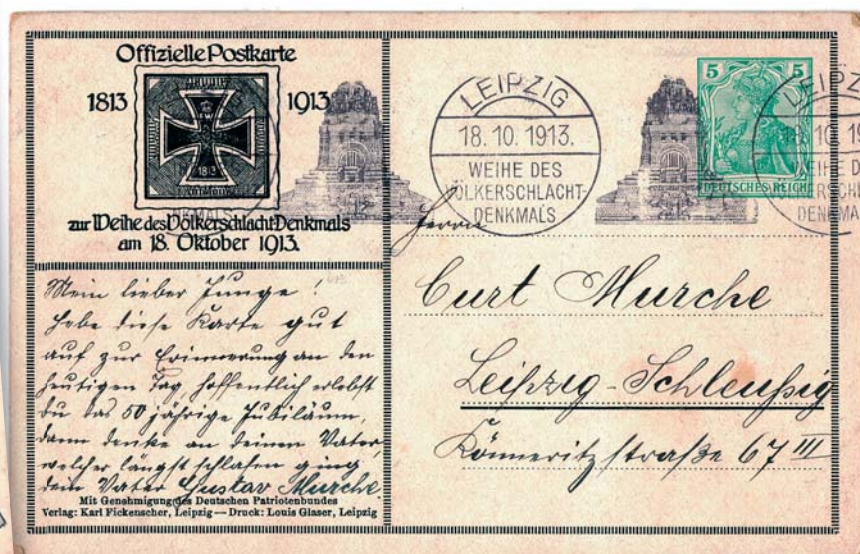 Offizielle Postkarte
1813 1913
1813
zur Weihe des Völkerschlacht-Denkmals
am 18. Oktober 1913.
LEIPZIG
18. 10. 1913.
WEIHE DES
VÖLKERSCHLACHT-
DENKMALS
5 5
DEUTSCHES REICH
Mein lieber Junge!
Hebe diese Karte gut
auf zur Erinnerung an den
heutigen Tag hoffentlich erlebst
du das 50 jährige Jubiläum,
dann denke an deinen Vater,
welcher längst schlafen ging
dein Vater Gustav Murche.
Mit Genehmigung des Deutschen Patriotenbundes
Verlag: Karl Fickenscher, Leipzig — Druck: Louis Glaser, Leipzig
Herrn
Curt Murche
Leipzig-Schleußig
Könneritzstraße 67 III